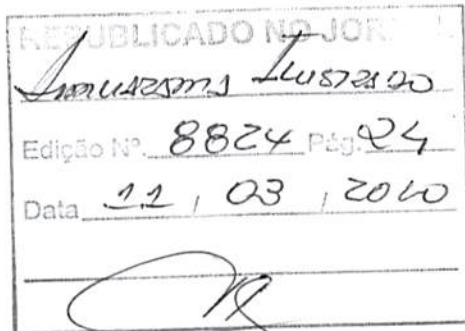 REPUBLICADO NO JORNAL
Umuarama Ilustrado
Edição Nº. 8824 Pág. 24
Data 11 / 03 / 2010